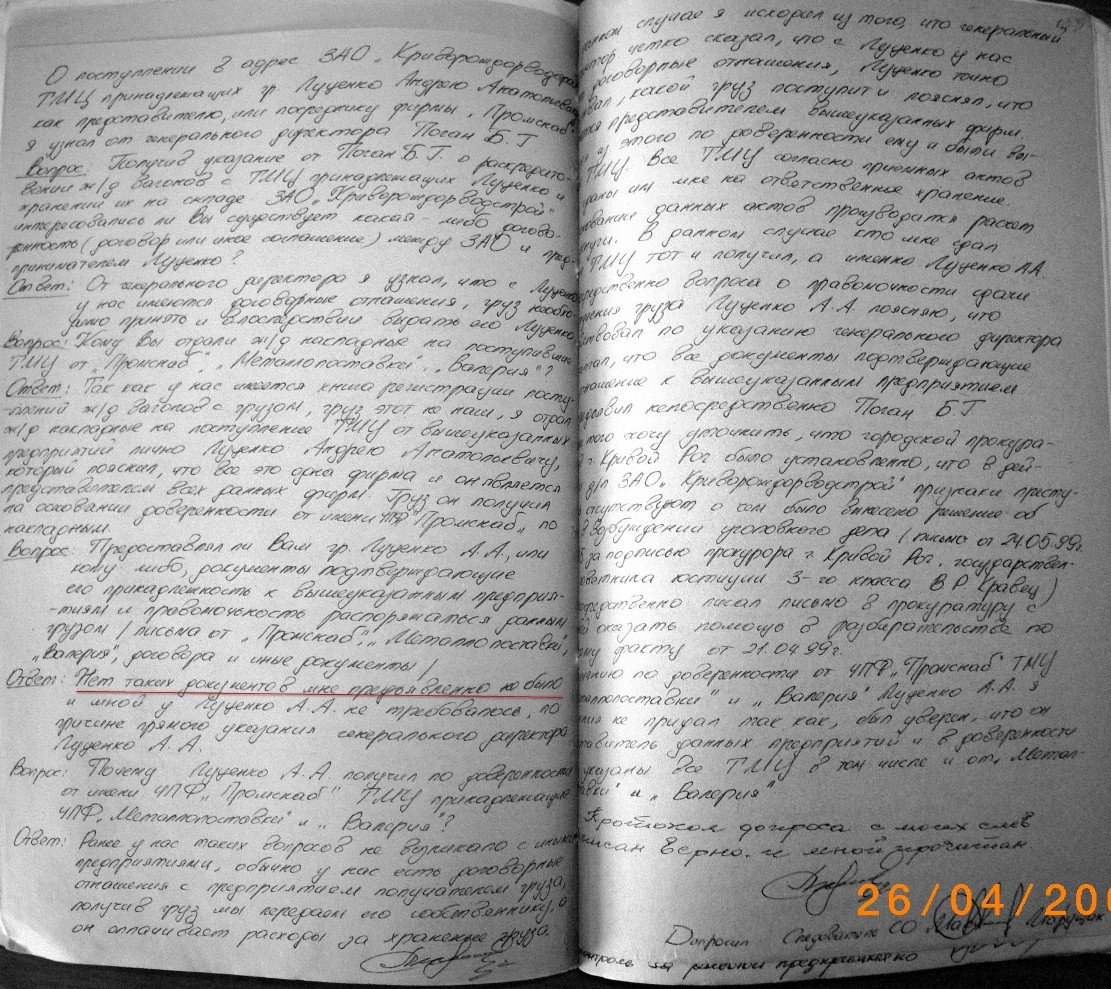 О поступлении в адрес ЗАО "Криворождорводстрой"
ТМЦ принадлежащих гр. Луценко Андрею Анатольевичу
как представителю, или посреднику фирмы "Промснаб"
я узнал от генерального директора Поган Б.Г.
Вопрос: Получив указание от Поган Б.Г. о раскредито-
вании ж/д вагонов с ТМЦ принадлежащих Луценко и
хранении их на складе ЗАО "Криворождорводстрой"
интересовались ли Вы существует какая-либо догово-
ренность (договор или иное соглашение) между ЗАО и пред-
принимателем Луценко?
Ответ: От генерального директора я узнал, что с Луценко
у нас имеются договорные отношения, груз необхо-
димо принять и впоследствии выдать его Луценко
Вопрос: Кому Вы отдали ж/д накладные на поступившие
ТМЦ от "Промснаб", "Металлопоставки", "Валерия"?
Ответ: Так как у нас имеется книга регистрации посту-
плений ж/д вагонов с грузом, груз этот не наш, я отдал
ж/д накладные на поступление ТМЦ от вышеуказанных
предприятий лично Луценко Андрею Анатольевичу,
который пояснил, что все это одна фирма и он является
представителем всех данных фирм. Груз он получил
на основании доверенности от имени ЧПФ "Промснаб" по
накладным.
Вопрос: Предоставлял ли Вам гр. Луценко А.А., или
кому либо, документы подтверждающие
его принадлежность к вышеуказанным предприя-
-тиям и правомочность распоряжаться данным
грузом / письма от "Промснаб", "Металлопоставки",
"Валерия", договора и иные документы /
Ответ: Нет таких документов мне предъявленно не было
и мной у Луценко А.А. не требовалось, по
причине прямого указания генерального директора
Луценко А.А.
Вопрос: Почему Луценко А.А. получил по доверенности
от имени ЧПФ "Промснаб" ТМЦ принадлежащие
ЧПФ "Металлопоставки" и "Валерия"?
Ответ: Ранее у нас таких вопросов не возникало с иными
предприятиями, обычно у нас есть договорные
отношения с предприятием получателем груза,
получив груз мы передаем его собственнику, а
он оплачивает расходы за хранение груза.
данном случае я исходил из того, что генеральный
ктор четко сказал, что с Луценко у нас
договорные отношения, Луценко точно
какой груз поступит и пояснял, что
тся представителем вышеуказанных фирм.
из этого по доверенности ему и были вы-
ТМЦ. Все ТМЦ согласно приемных актов
даны им мне на ответственное хранение.
вании данных актов производится расчет
луги. В данном случае кто мне сдал
ТМЦ тот и получил, а именно Луценко А.А.
средственно вопроса о правомочности сдачи
чения груза Луценко А.А. поясняю, что
ствовал по указанию генерального директора
что все документы подтверждающие
ношение к вышеуказанным предприятием
тавил непосредственно Поган Б.Г.
того хочу уточнить, что городской прокура-
г. Кривой Рог было установленно, что в дей-
д/л ЗАО "Криворождорводстрой" признаки престу-
сутствуют о чем было вынесено решение об
в возбуждении уголовного дела / письмо от 24.05.99г.
за подписью прокурора г. Кривой Рог, государствен-
оветника юстиции 3-го класса В.Р. Кравец)
осредственно писал письмо в прокуратуру с
оказать помощь в разбирательстве по
ому факту от 21.04.99г.
чению по доверенности от ЧПФ "Промснаб" ТМЦ
таллопоставки" и "Валерия" Луценко А.А. я
ния не придал так как, был уверен, что он
тавитель данных предприятий и в доверенности
указаны все ТМЦ в том числе и от "Метал-
авки" и "Валерия"
Протокол допроса с моих слов
писан верно. и мной прочитан
26/04/200
Допросил Следователь СО
контроль за